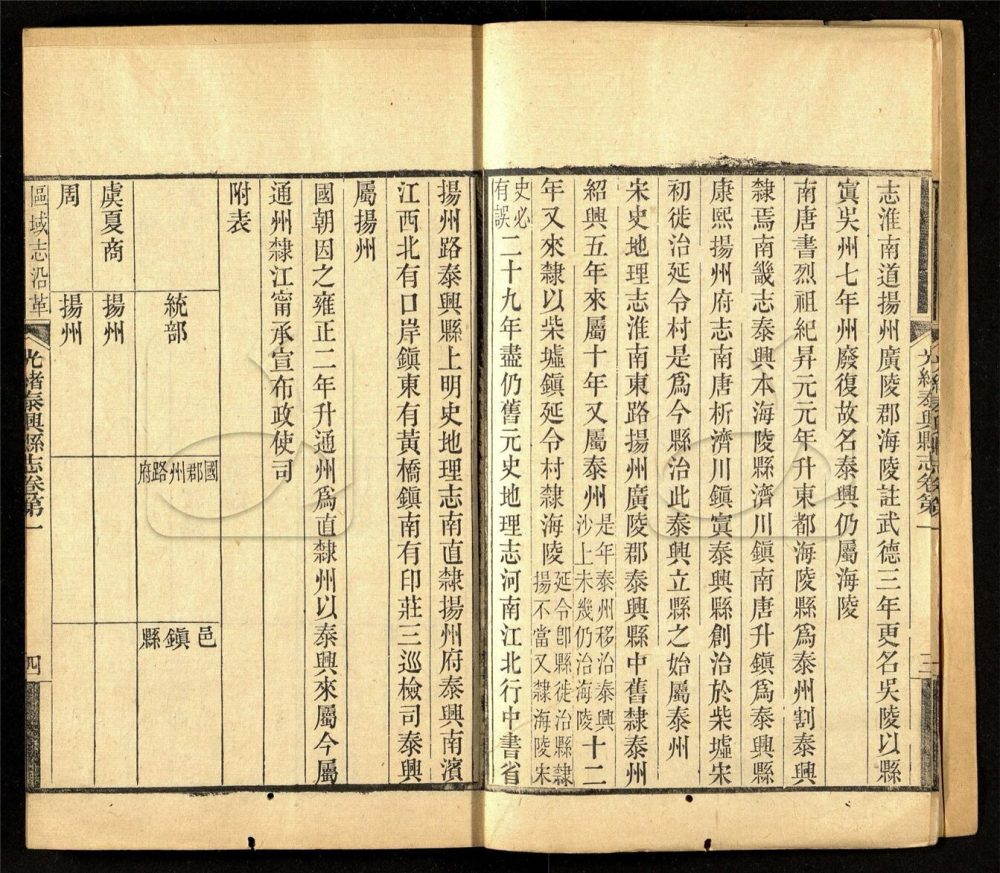 志淮南道揚州廣陵郡海陵註武德三年更名吳陵以縣
寘吳州七年州廢復故名泰興仍屬海陵
南唐書烈祖紀昇元元年升東都海陵縣爲泰州割泰興
隸焉南畿志泰興本海陵縣濟川鎮南唐升鎮爲泰興縣
康熙揚州府志南唐析濟川鎮寘泰興縣創治於柴墟宋
初徙治延令村是爲今縣治此泰興立縣之始屬泰州
宋史地理志淮南東路揚州廣陵郡泰興縣中舊隸泰州
紹興五年來屬十年又屬泰州是年泰州移治泰興沙上未幾仍治海陵十二
年又來隸以柴墟鎮延令村隸海陵延令卽縣徙治縣隸揚不當又隸海陵宋
史必有誤二十九年盡仍舊元史地理志河南江北行中書省
揚州路泰興縣上明史地理志南直隸揚州府泰興南濱
江西北有口岸鎮東有黃橋鎮南有印莊三巡檢司泰興
屬揚州
國朝因之雍正二年升通州爲直隸州以泰興來屬今屬
通州隸江甯承宣布政使司
附表
統部
國郡州路府
邑鎮縣
虞夏商
揚州
周
揚州
區域志沿革
光緒泰興縣志卷第一
四